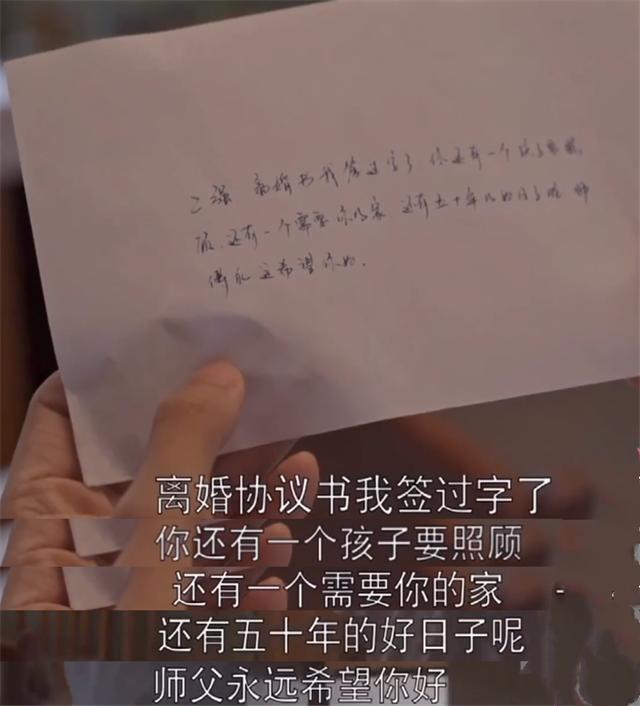 二强 离婚书我签过字了 你还有一个孩子要照
顾.还有一个需要你的家 还有五十年的好日子呢 师
傅永远希望你好.
离婚协议书我签过字了
你还有一个孩子要照顾
还有一个需要你的家
还有五十年的好日子呢
师父永远希望你好